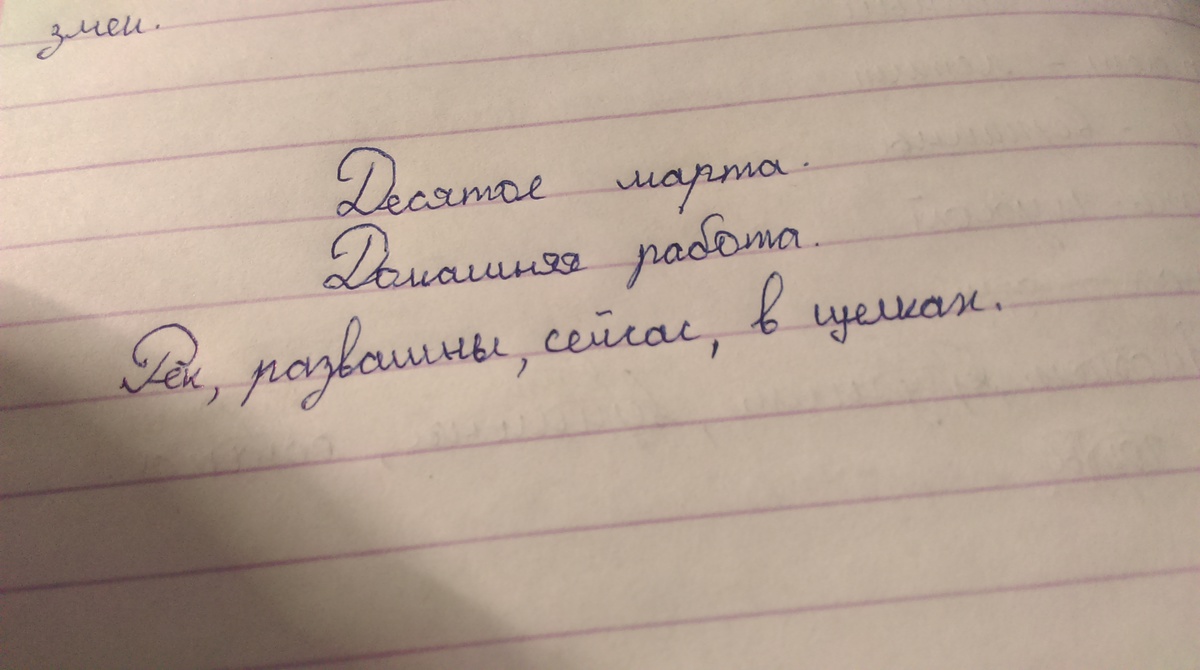 змеи.
Десятое марта.
Домашняя работа.
Рёк, развашны, сейчас, в щелках.